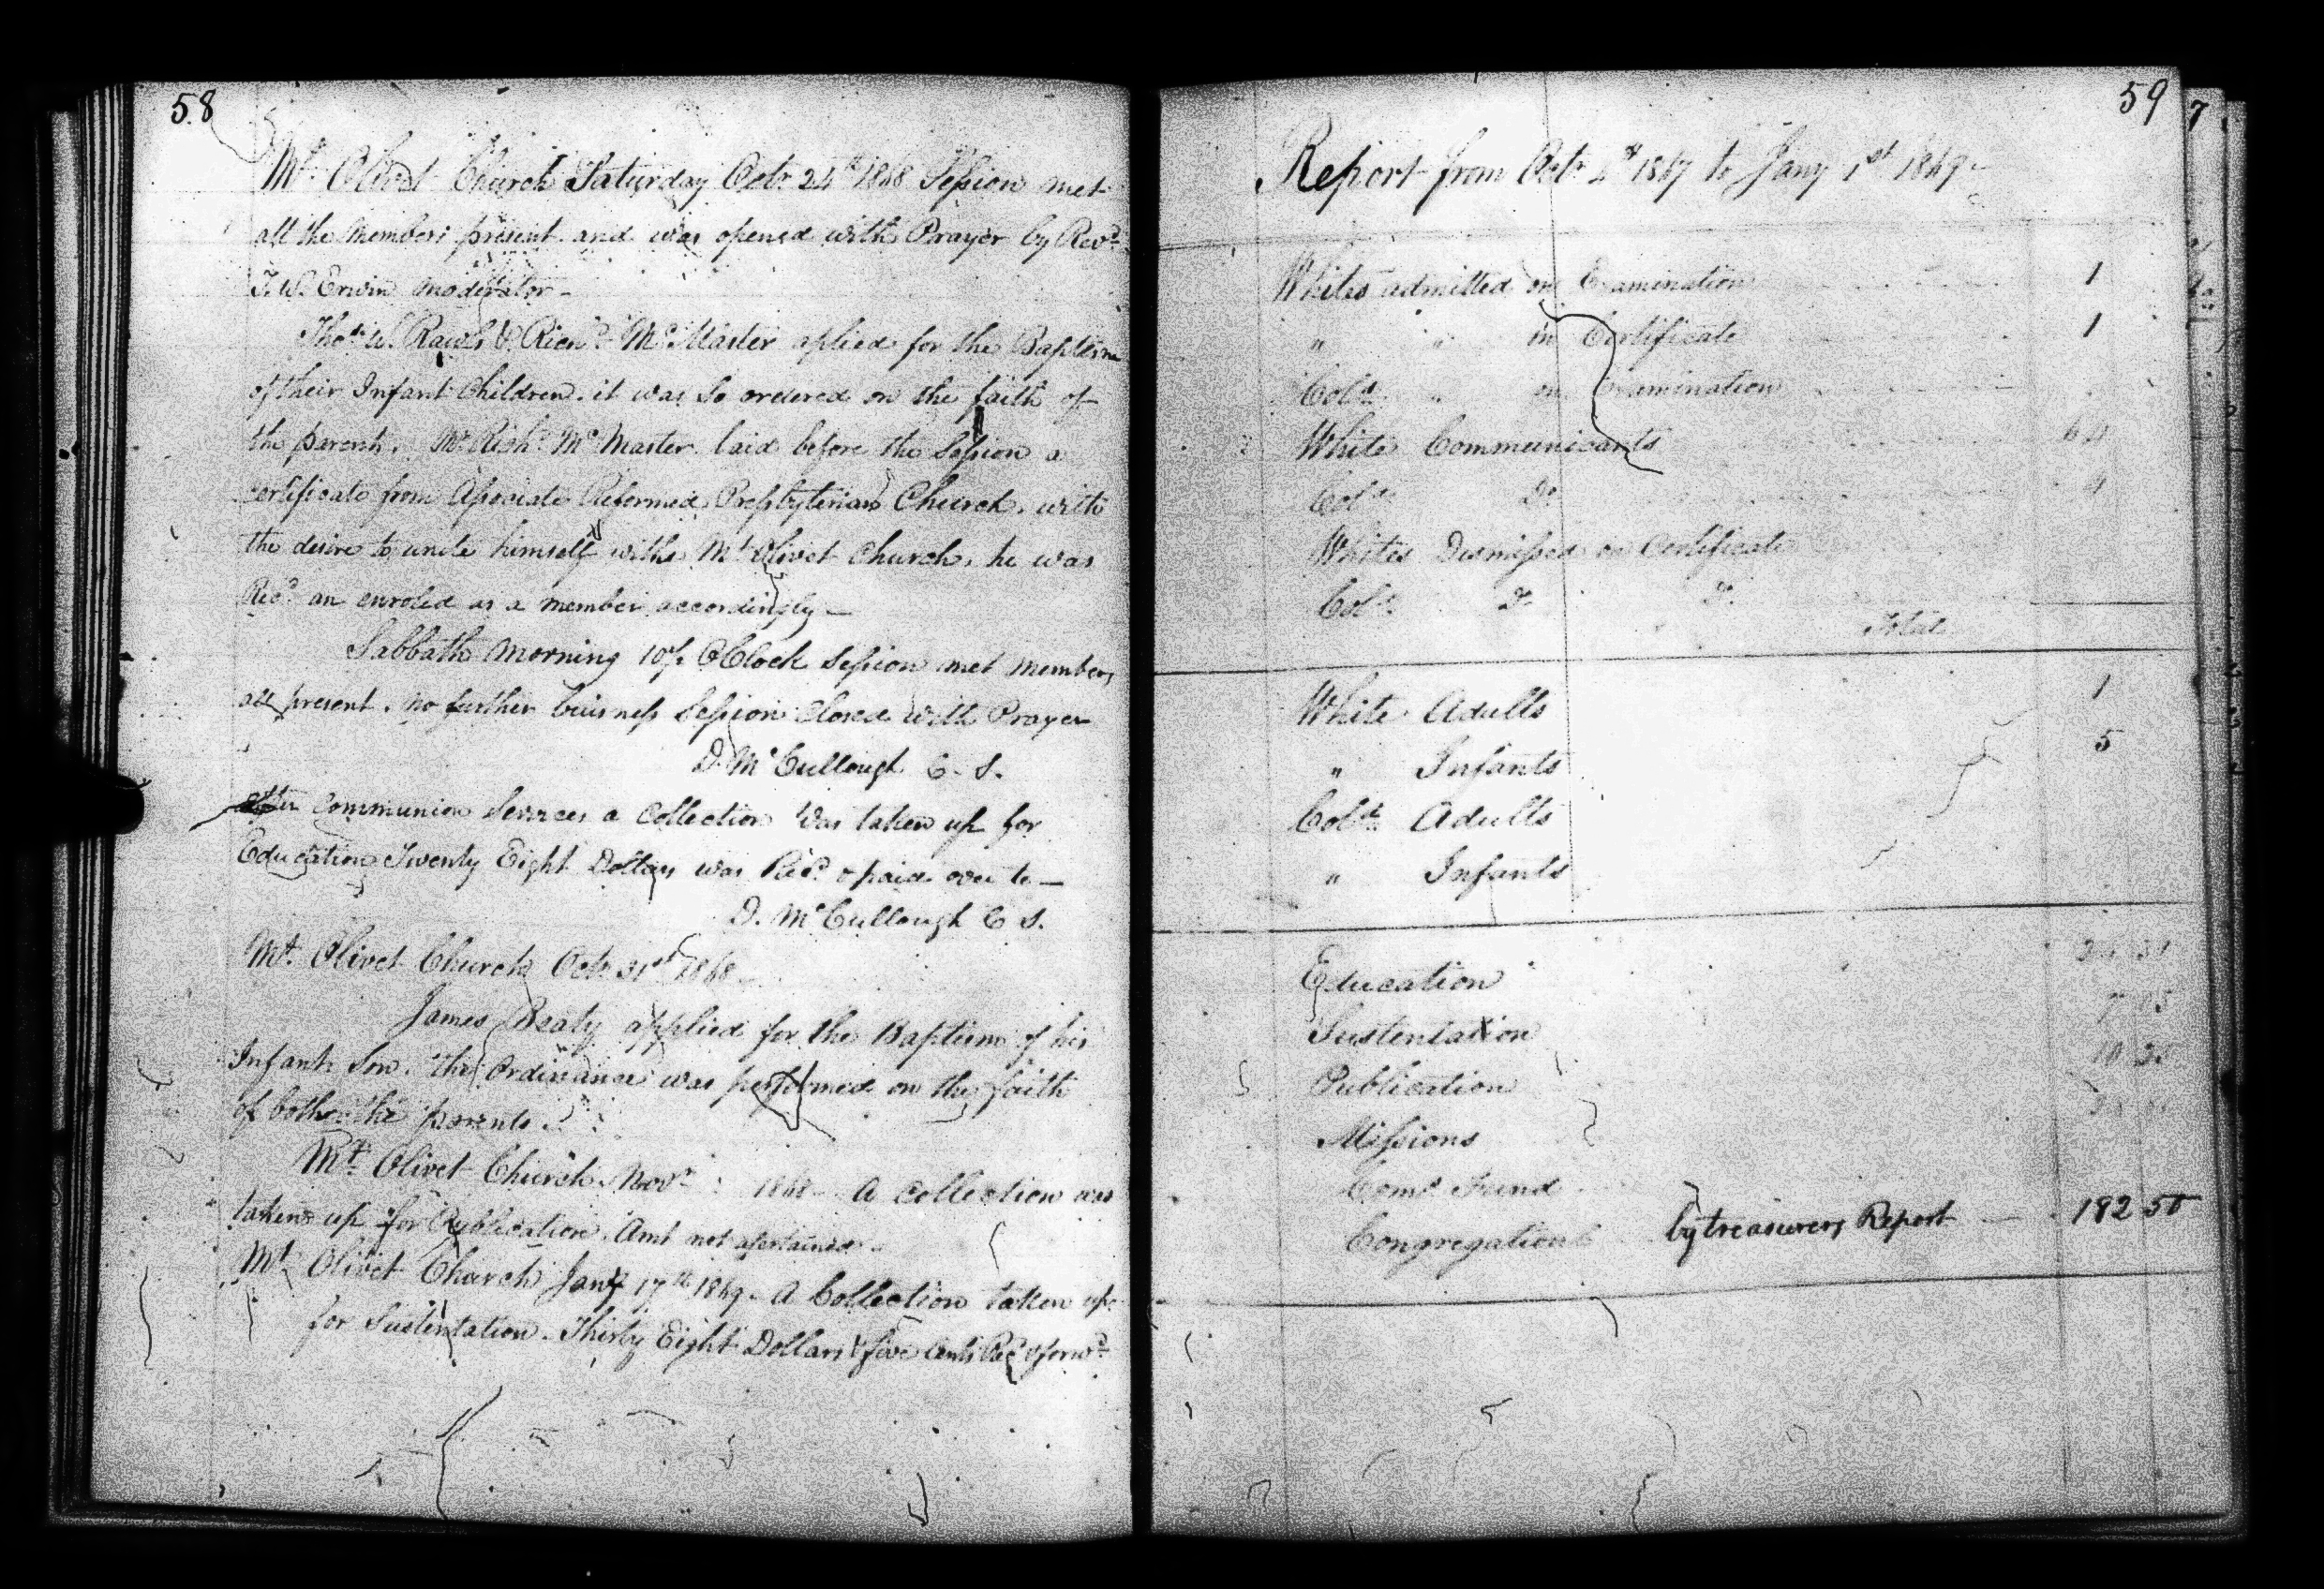 58
Mt. Olivet Church Saturday Octr 24th 1868 Session met
all the members present and was opened with Prayer by Revd.
T. W. Erwin moderator -
Thos. W. Rawls & Richd. McMaster aplied for the Baptism
of their Infant Children. it was so ordered on the faith of
the parents. Mr. Richd. McMaster laid before the Session a
certificate from Associate Reformed Presbyterian Church. with
the desire to unite himself with Mt Olivet Church, he was
Recd. an enroled as a member accordingly -
Sabbath morning 10 1/2 OClock Session met members
all present. no further buisness Session Closed with Prayer
D. McCullough C. S.
after communion Services a Collection was taken up for
Education Twenty Eight Dollars was Recd. & paid over to -
D. McCullough C S.
Mt. Olivet Church Octr 31st 1868 -
James Beaty applied for the Baptism of his
Infant Son. the Ordinance was performed on the faith
of both the parents.
Mt. Olivet Church Novr. 1868 - A Collection was
taken up for Publication. Amt not asertained -
Mt. Olivet Church Jany 17th 1869 - A Collection taken up
for Sustentation. Thirty Eight Dollars & five Cents Recd & forwd.
59
Report from Octr 1867 to Jany 1st 1869 -
Whites admitted on Examination 1
" " on Certificate 1
Cold. " on Examination
White Communicants 64
Cold. Do. 4
Whites Dismissed on Certificate
Cold. Do. Do.
Total
White Adults 1
" Infants 5
Cold. Adults
" Infants
Education
Sustentation
Publication
Missions
Comr. Fund
Congregational by treasurers Report - 182 50